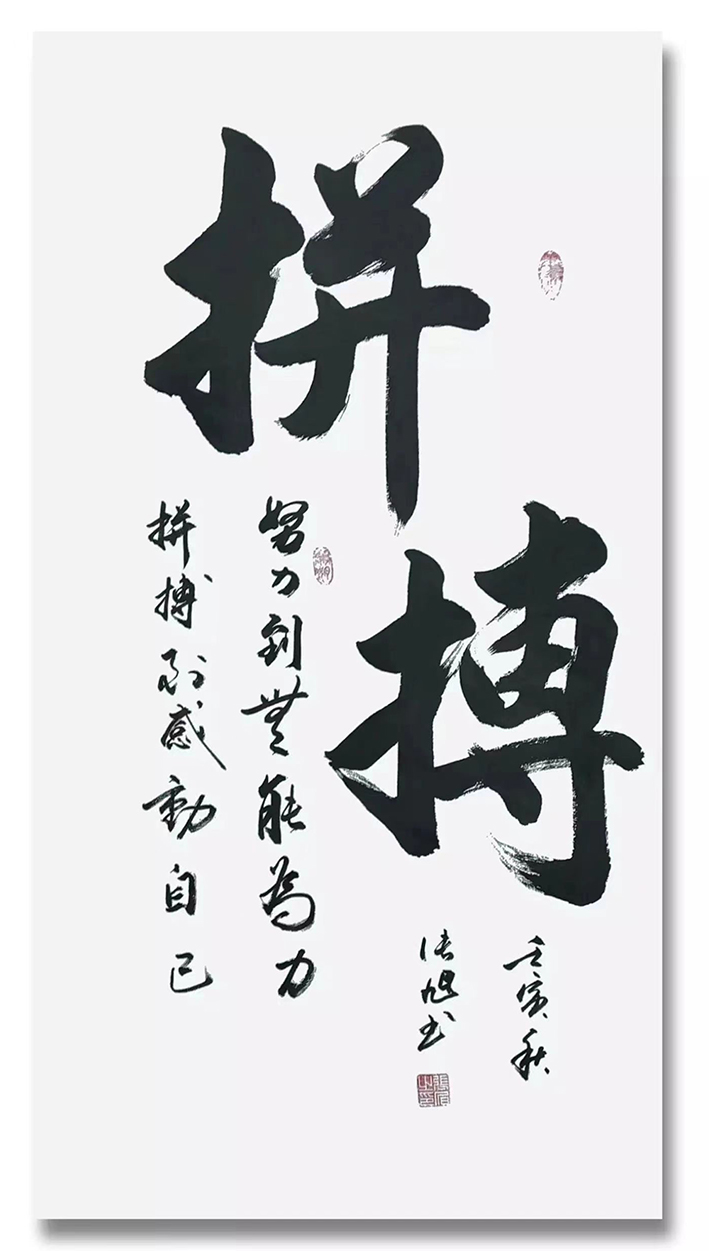 拼搏
努力到無能為力
拼搏到感動自己
壬寅秋
張旭书